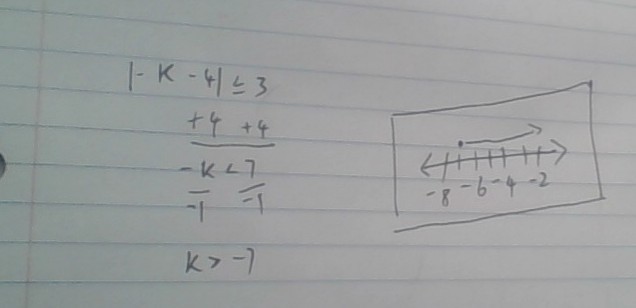 |- K - 4| ≤ 3
+4 +4
-K < 7
-1 -1
K > -7
-8 -6 -4 -2